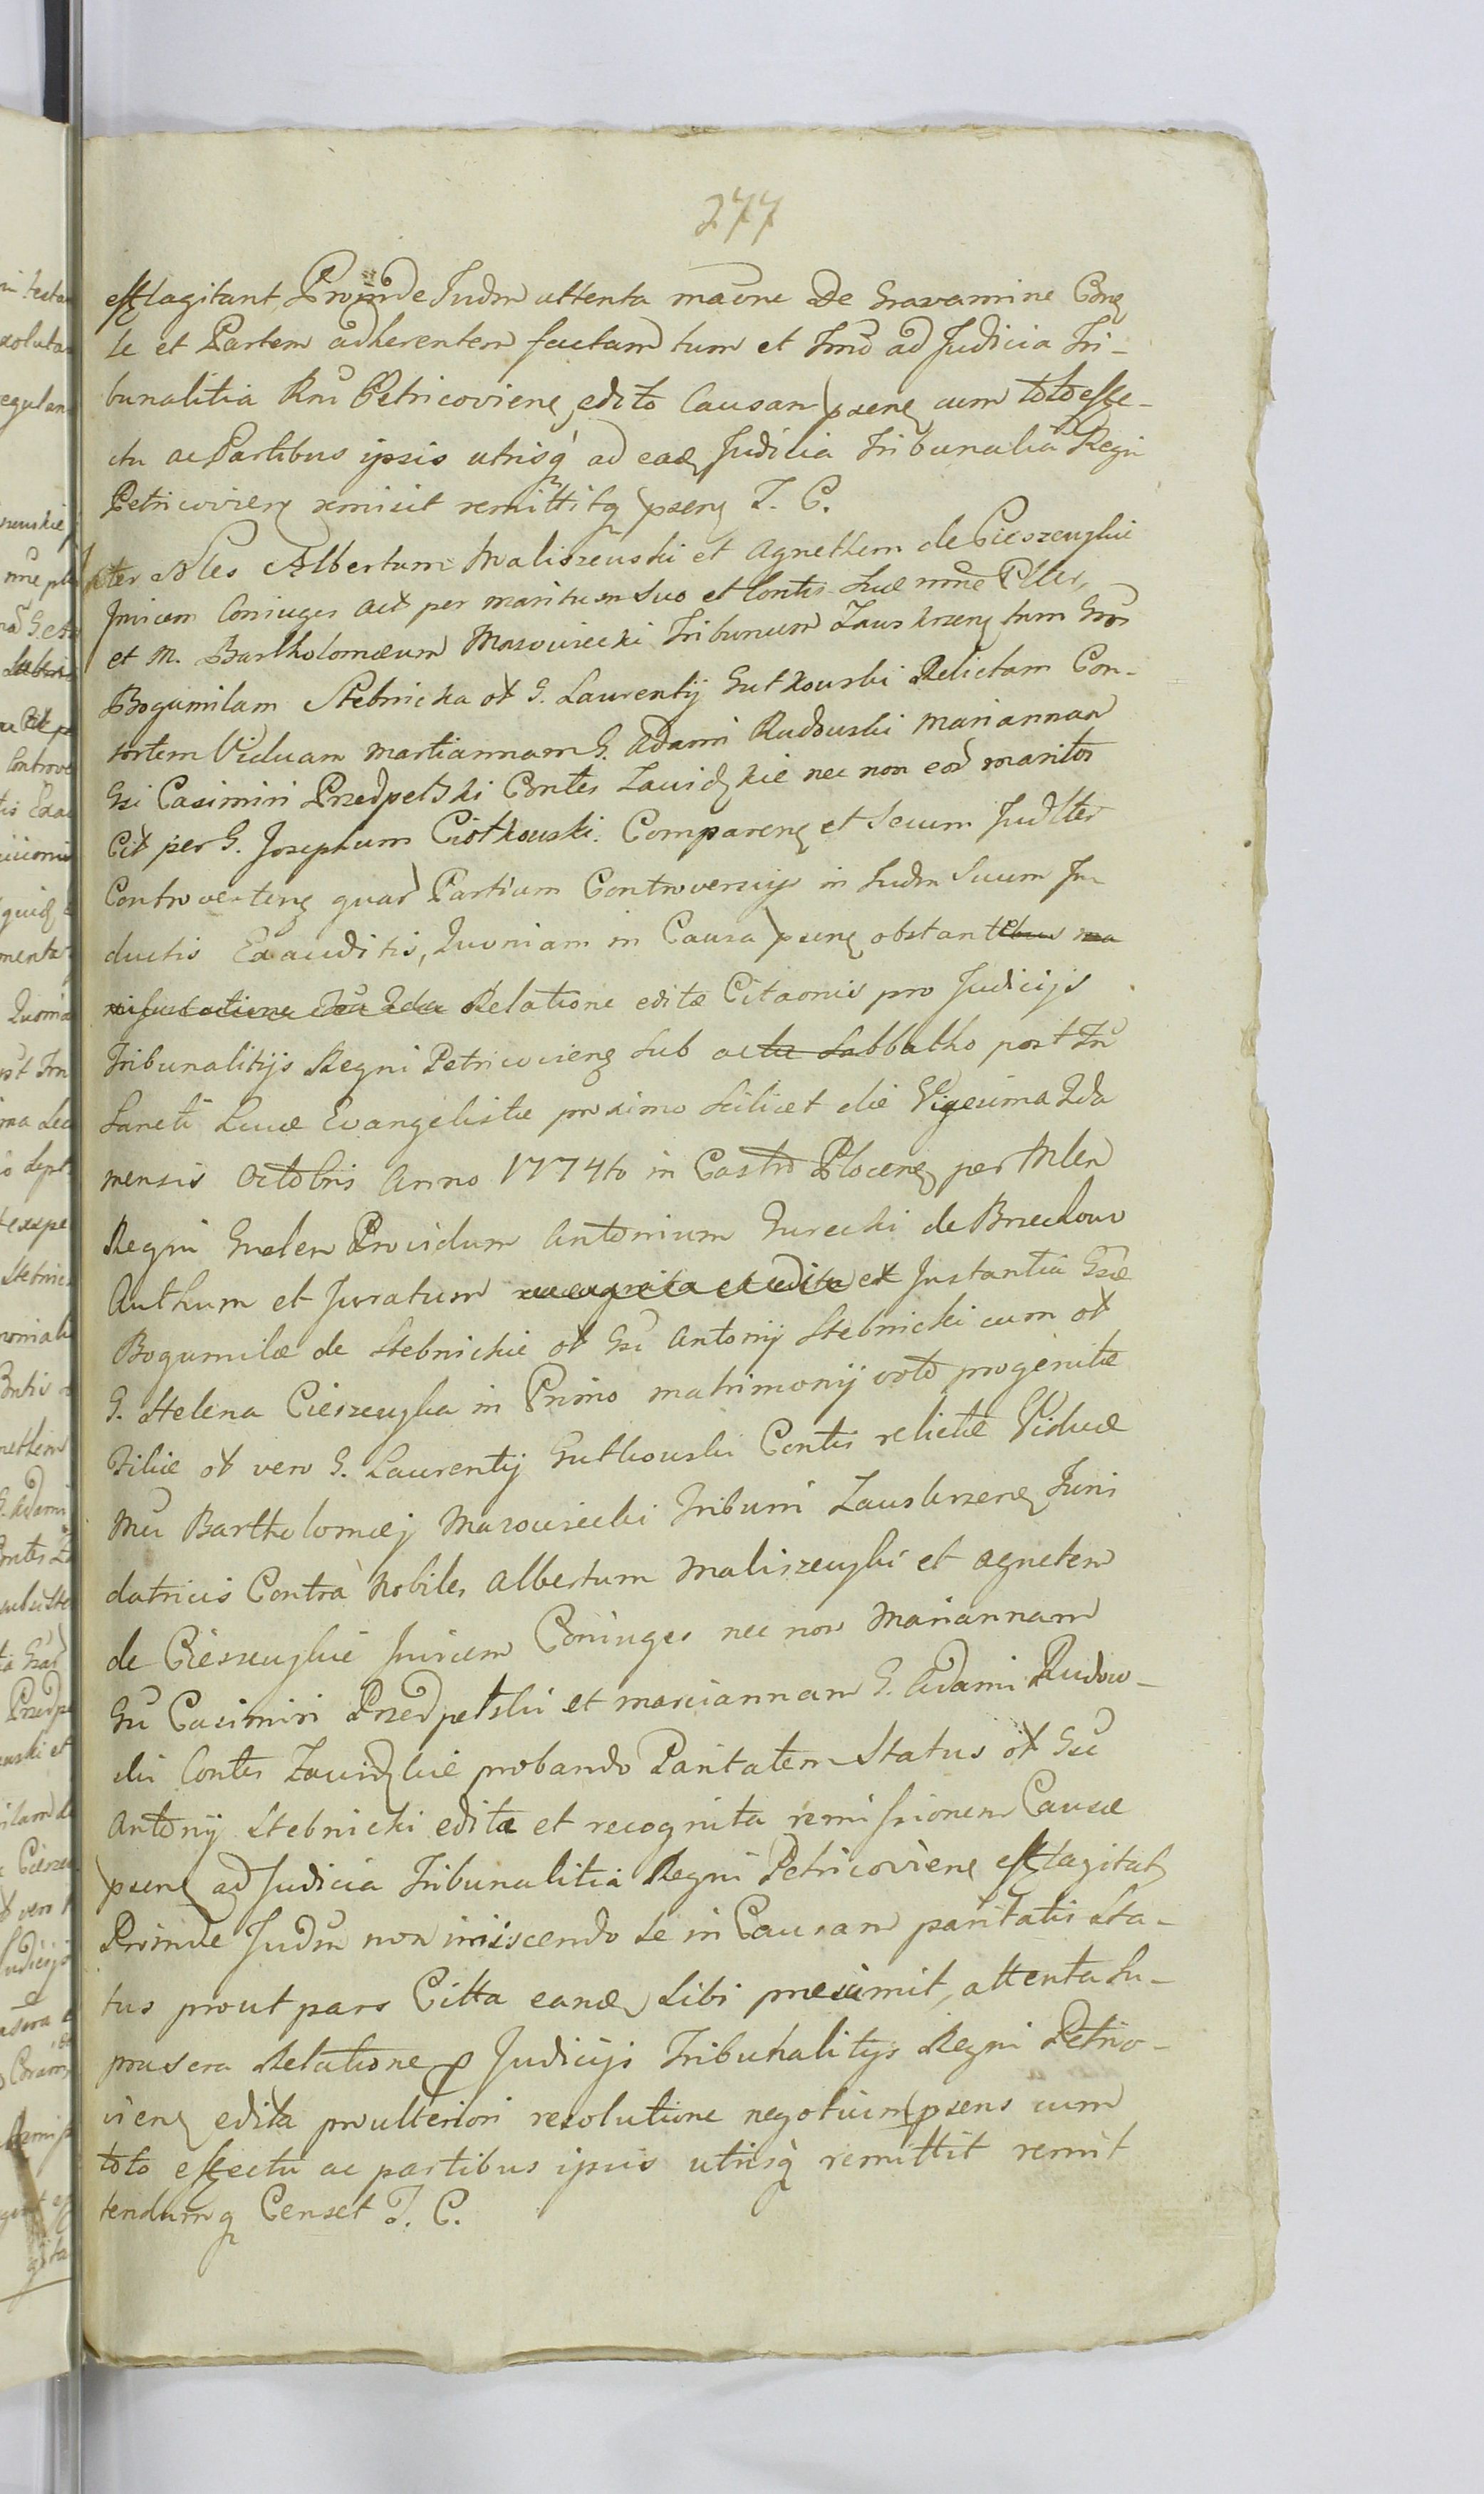 277
efflagitant, Proinde Judm attenta maone De Gravamine Conz
le et Partem adherentem factam tum et Tmno ad Judicia Tri-
bunalitia Rni Petricoviens edito Causam psens cum toto effe-
ctu ac Partibus ipsis utrisq ad eadz Judicia Tribunalia Regni
Petricoviens remisit remittitq psens J. C.
Inter Nles Albertum Maliszewski et Agnethem de Cieszewskie
Invicem Coniuges act per maritum suo et Contis suæ nmne Plter,
et M. Bartholomæum Mazowiecki Tribunum Zawskrzens tum Gnos
Bogumilam Stebnicka ot G. Laurentij Gutkowski Relictam Con-
sortem Viduam Martiannam G. Adami Rudowski Mariannam
Gsi Casimiri Przedpelski Contes Zawidzkie nec non eod maritos
Cit per G. Josephum Ciotkowski. Comparens et Secum Judlter
Controvertens quar Partium Controversijs in Judm Suum In
ductis Exauditis, Quoniam in Causa psens obstan
Relatione editæ Citaonis pro Judicijs
Tribunalitijs Regni Petricoviens sub actu Sabbatho post Fn
Sancti Lucæ Evangelistæ proximo scilicet die Vigesima 2da
mensis Octobris Anno 1774to in Castro Plocens per Mlem
Regni Gnalem Providum Antonium Gurecki de Brzechowo
Authum et Juratum ex Instantia Gsæ
Bogumilæ de Stebnickie ot Gsi Antonij Stebnicki cum ot
G. Helena Cieszewska in Primo matrimonij voto progenitæ
Filiæ ot vero G. Laurentij Gutkowski Contis relictæ Viduæ
Mci Bartholomæj Mazowiecki Tribuni Zawskrzens Juris
datricis Contra Nobiles Albertum Maliszewski et Agnetem
de Cieszewskie Invicem Coniuges nec non Mariannam
Gsi Casimiri Przedpelski et Marciannam G. Adami Rudow-
ski Contes Zawidzkie probando Paritatem Status ot Gsi
Antonij Stebnicki edita et recognita remissionem Causæ
psens ad Judicia Tribunalitia Regni Petricoviens efflagitat
Proinde Judm non imiscendo se in Causam paritatis Sta-
tus prout pars Citta eandz sibi præsumit, attenta su-
prascra Relatione p Judicijs Tribunalitijs Regni Petrico-
viens edita pro ulteriori resolutione negotium psens cum
toto effectu ac partibus ipsis utrisq remittit remit
tendumq Censet J. C.